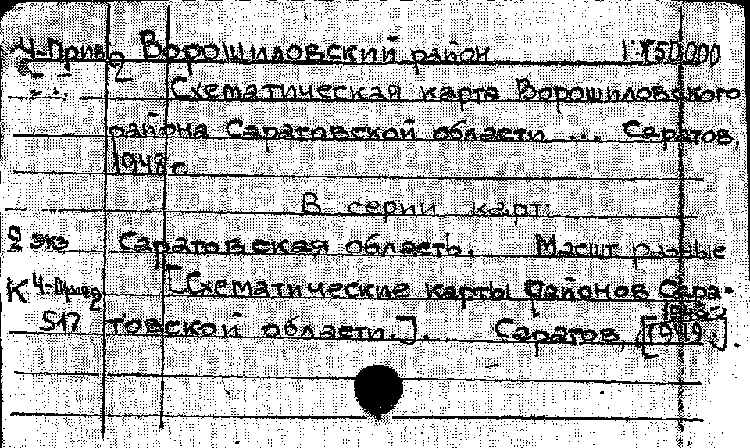 Ч-Прив2 Ворошиловский район 1:150.000
Схематическая карта Ворошиловского
района Саратовской области ... Саратов,
1948г
В серии карт:
2 экз Саратовская область. Масшт разные
К Ч-Прив2 [Схематические карты районов Сара-
517 товской области.]. Саратов, [1949].